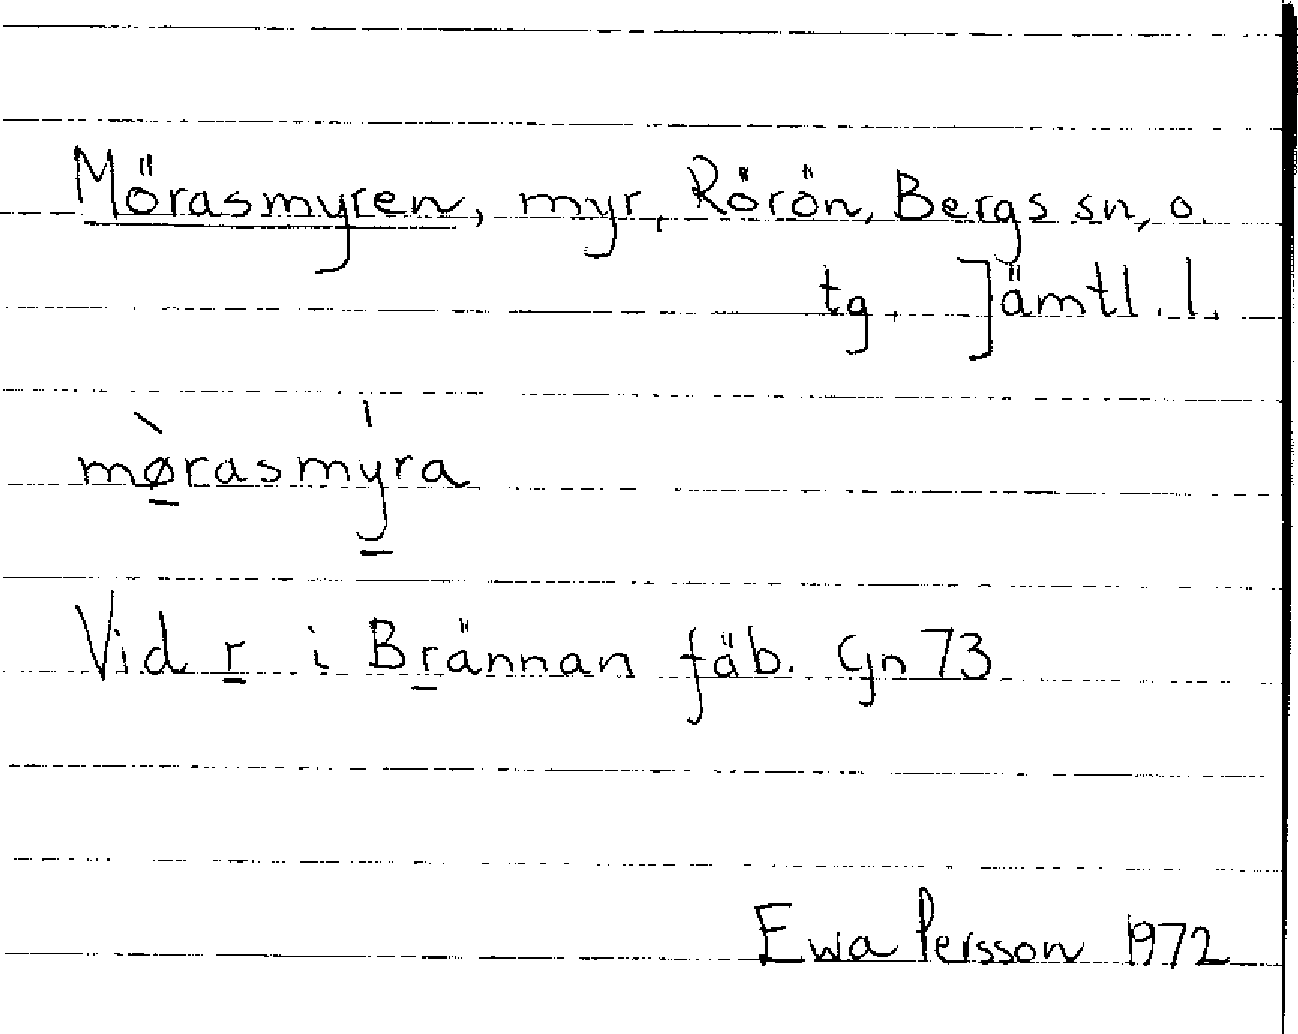 Mörasmyren, myr, Rörön, Bergs sn, o.
tg. Jämtl. l.
mø̀rasmýra
Vid r i Brännan fäb. Gn 73
Ewa Persson 1972